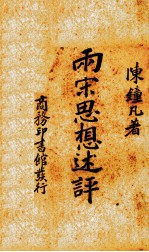 陳鐘凡著
兩宋思想述評
商務印書館發行